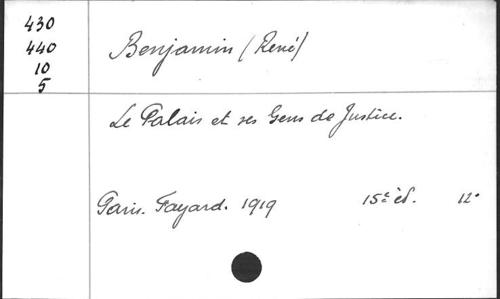 430
440
10
5
Benjamin (René)
Le Palais et ses Gens de Justice.
Paris. Fayard. 1919 15e éd. 12°